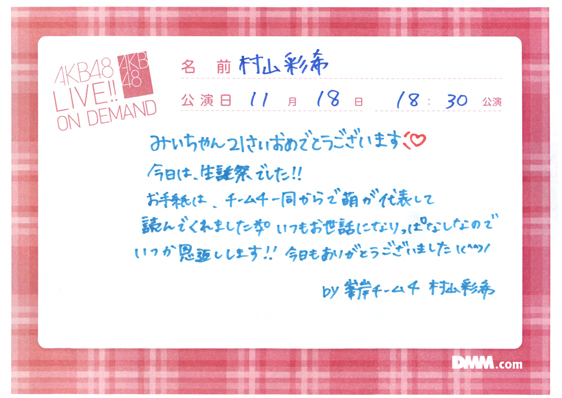 AKB48
LIVE!!
ON DEMAND
AKB
48
名 前 村山彩希
公演日 11 月 18 日 18:30 公演
みぃちゃん21さいおめでとうございます
今日は、生誕祭でした!!
お手紙は、チーム4一同からで萌が代表して
読んでくれました いつもお世話になりっぱなしなので
いつか恩返しします!! 今日もありがとうございました\(^^)/
by 峯岸チーム4 村山彩希
DMM.com